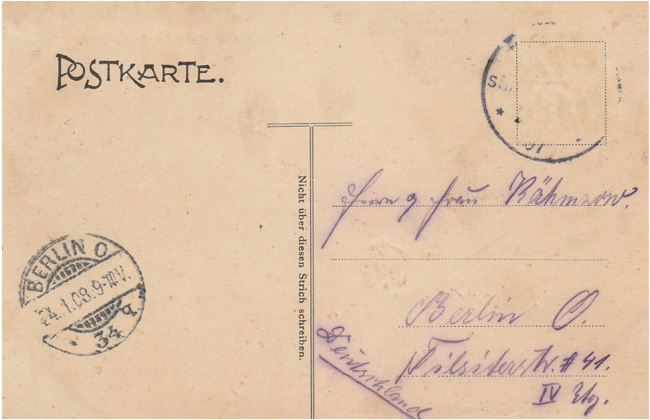 POSTKARTE.
Nicht über diesen Strich schreiben.
Herrn & Frau Rähmzow.
Berlin O.
Tilsiterstr. # 41.
IV Etg.
Deutschland
BERLIN O.
24.1.08.9-10V.
* 34 a